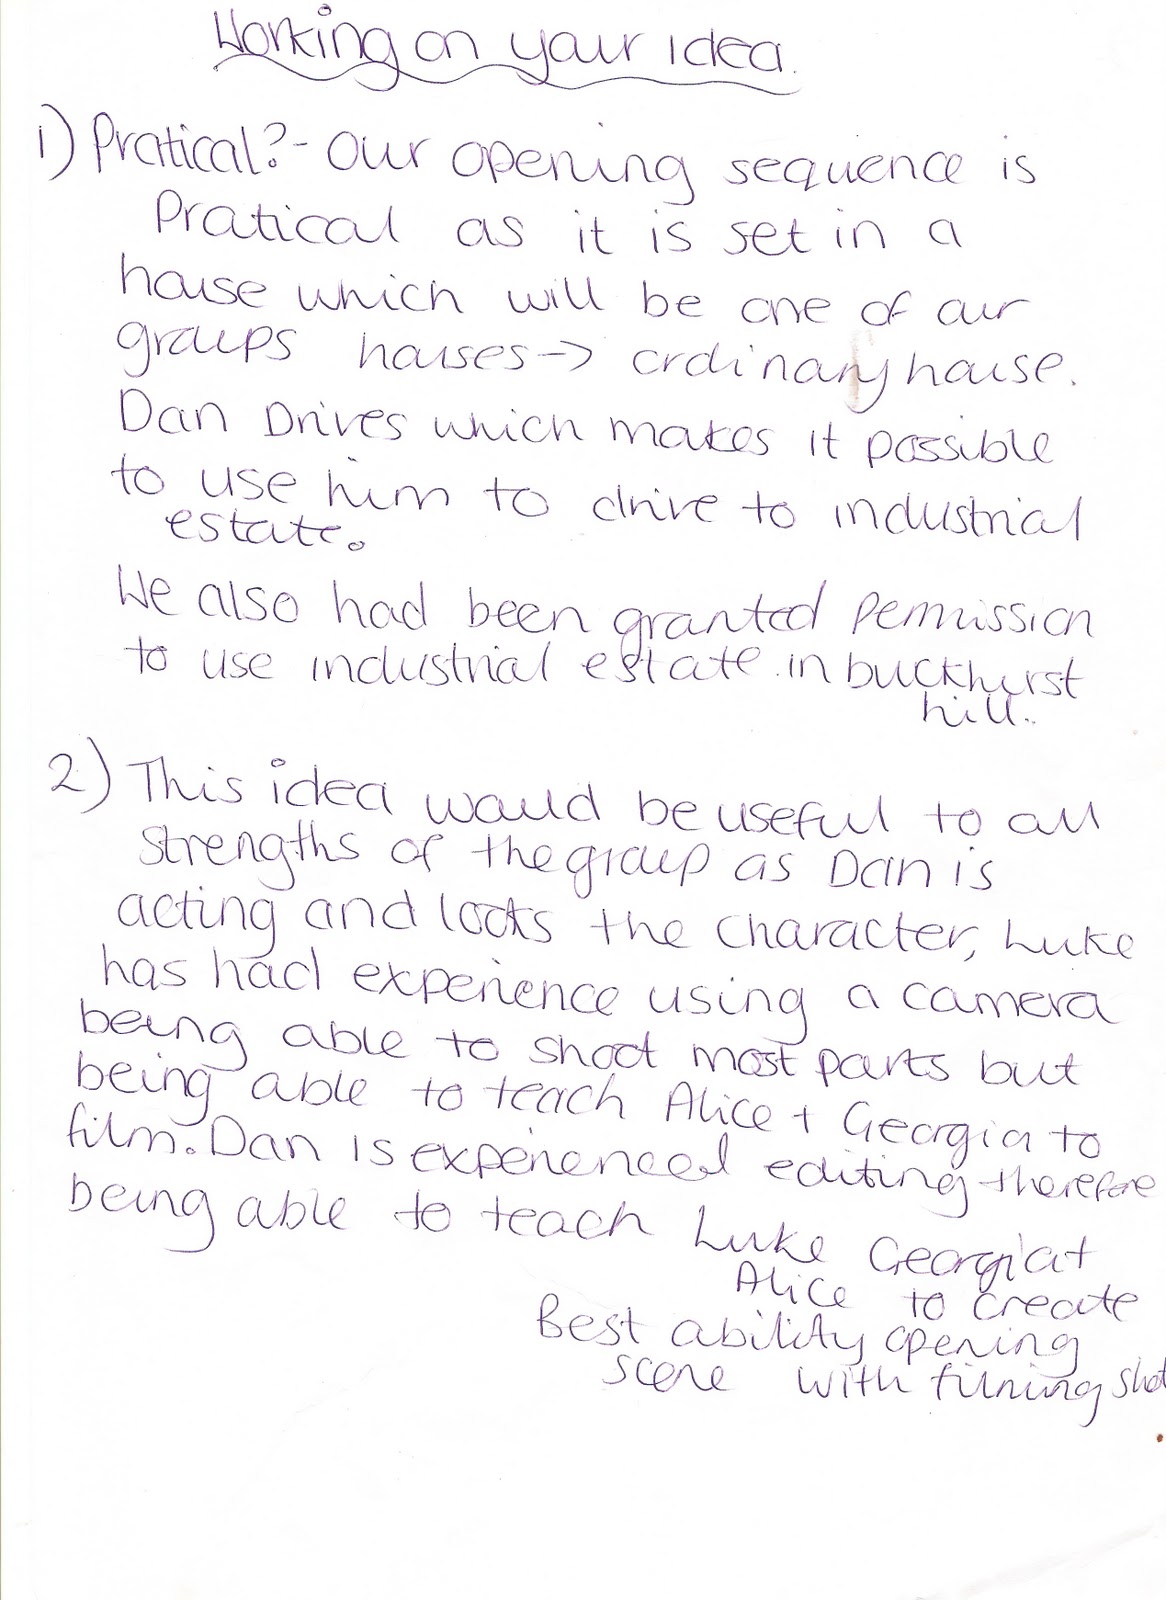 Working on your idea.
1) Pratical? - Our opening sequence is
Pratical as it is set in a
house which will be one of our
groups houses → ordinary house.
Dan Drives which makes it possible
to use him to drive to industrial
estate.
We also had been granted permission
to use industrial estate. in buckhurst
hill..
2) This idea would be useful to all
strengths of the group as Dan is
acting and looks the character, Luke
has had experience using a camera
being able to shoot most parts but
being able to teach Alice + Georgia to
film. Dan is experienced editing therefore
being able to teach Luke Georgia +
Alice to create
Best ability opening
scene with filming shot